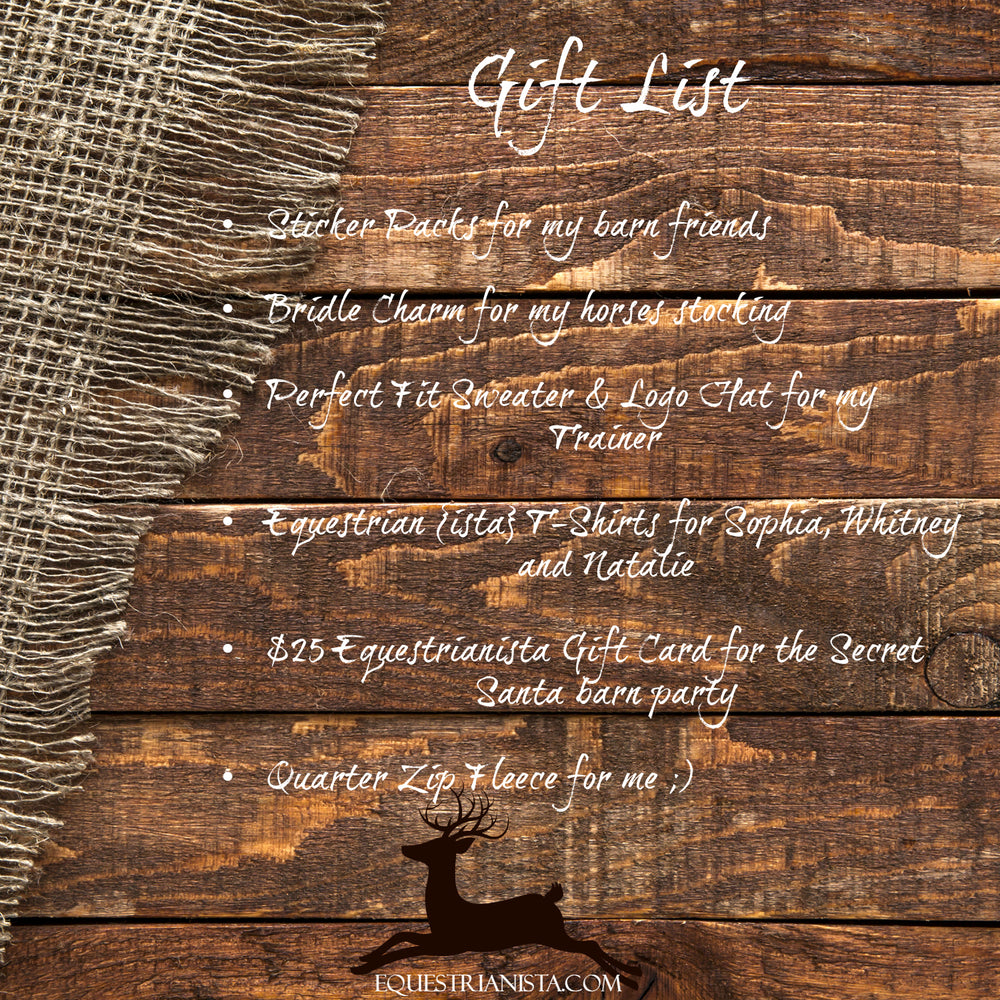 Gift List
• Sticker Packs for my barn friends
• Bridle Charm for my horses stocking
• Perfect Fit Sweater & Logo Hat for my
Trainer
• Equestrian {ista} T-Shirts for Sophia, Whitney
and Natalie
• $25 Equestrianista Gift Card for the Secret
Santa barn party
• Quarter Zip Fleece for me ;)
EQUESTRIANISTA.COM